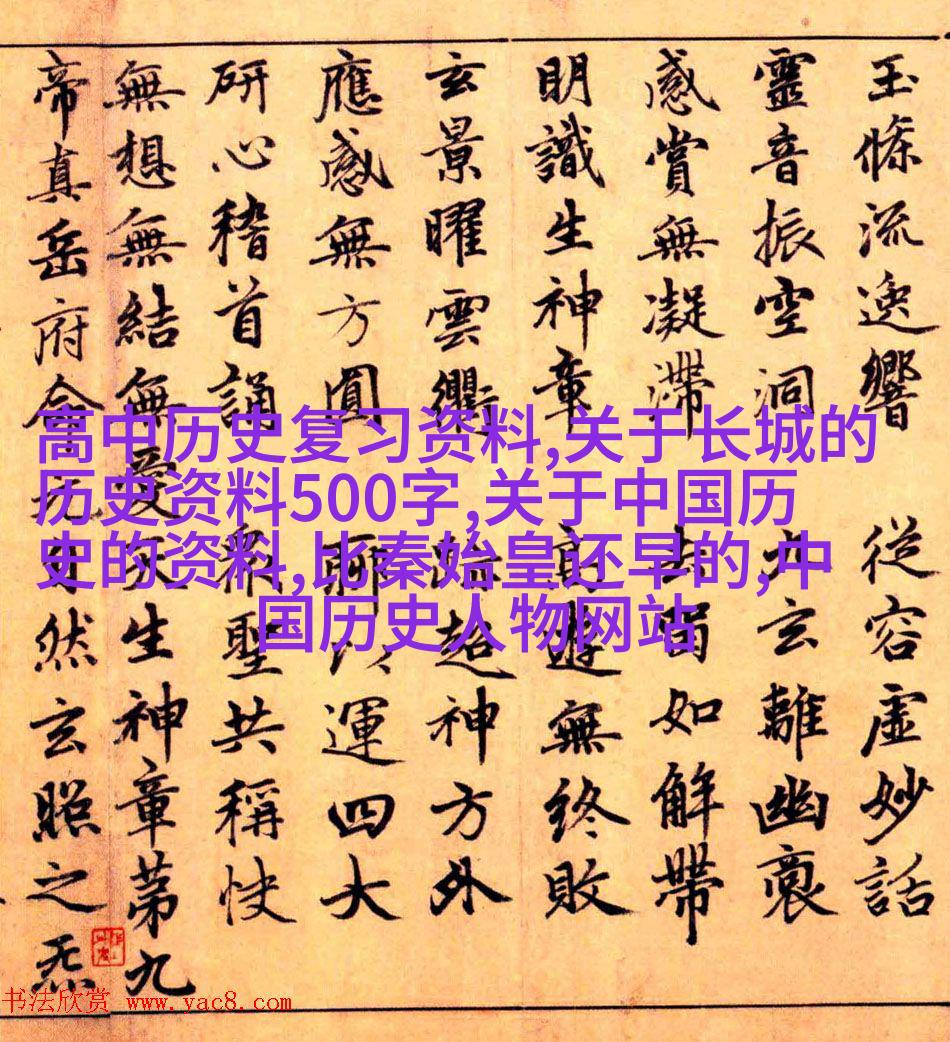 玉條流逸響 從容虛妙話
靈音振空洞 九玄離幽裒
感賞無凝滯 去留如解帶
明識生神章 高遊無終敗
玄景曜雲衢 超神方外
應感無方圓 聊以運四大
研心稽首誦 衆聖共稱快
無想無結無愛天生神章第九
帝真岳府令元自然玄照之炁
高中历史复习资料,关于长城的
历史资料500字,关于中国历
史的资料,比秦始皇还早的,中
国历史人物网站
书法欣赏 www.yac8.com